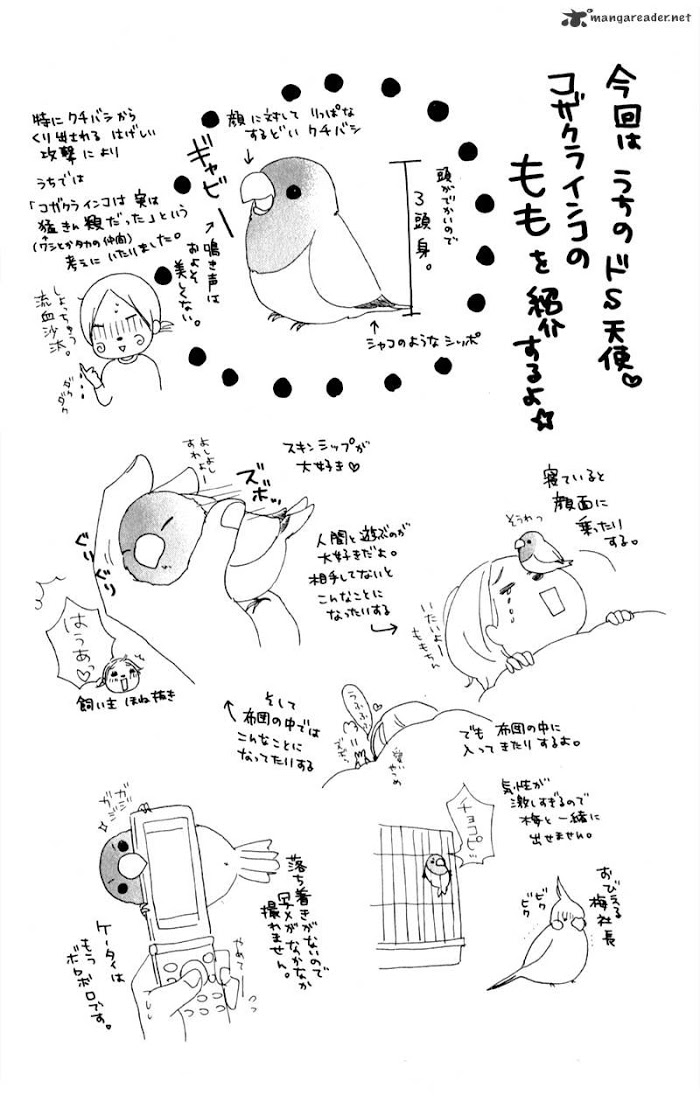 mangareader.net
今回は うちのドS天使♡
コザクラインコの
ももを紹介するよ☆
顔に対して りっぱな
するどい クチバシ
頭がでかいので
3頭身。
ギャピー
鳴き声は
およそ
美しくない。
シャコのような シッポ
特に クチバシから
くり出される はげしい
攻撃により
うちでは
「コザクラインコは 実は
猛きん類だった」という
(ワシとかタカの仲間)
考えに いたりました。
しょっちゅう
流血沙汰。
ダク
ダク
スキンシップが
大好き♡
よしよし
すわよー
ズボッ
ぐりぐり
はうあっ♡
飼い主 ほね抜き
人間と遊ぶのが
大好きだよ。
相手してないと
こんなことに
なったりする
寝ていると
顔面に
乗ったり
する。
いたいよー
ももちゃん
でも 布団の中に
入ってきたりするよ。
うふふふ♡
そして
布団の中では
こんなことに
なってたりする
ガジ
ガジ
落ち着きがないので
写メがなかなか
撮れません。
やめてー
ケータイは
もう
ボロボロです。
気性が
激しすぎるので
梅と一緒に
出せません。
チョコピッ
おびえる
梅社長
ビク
ビク